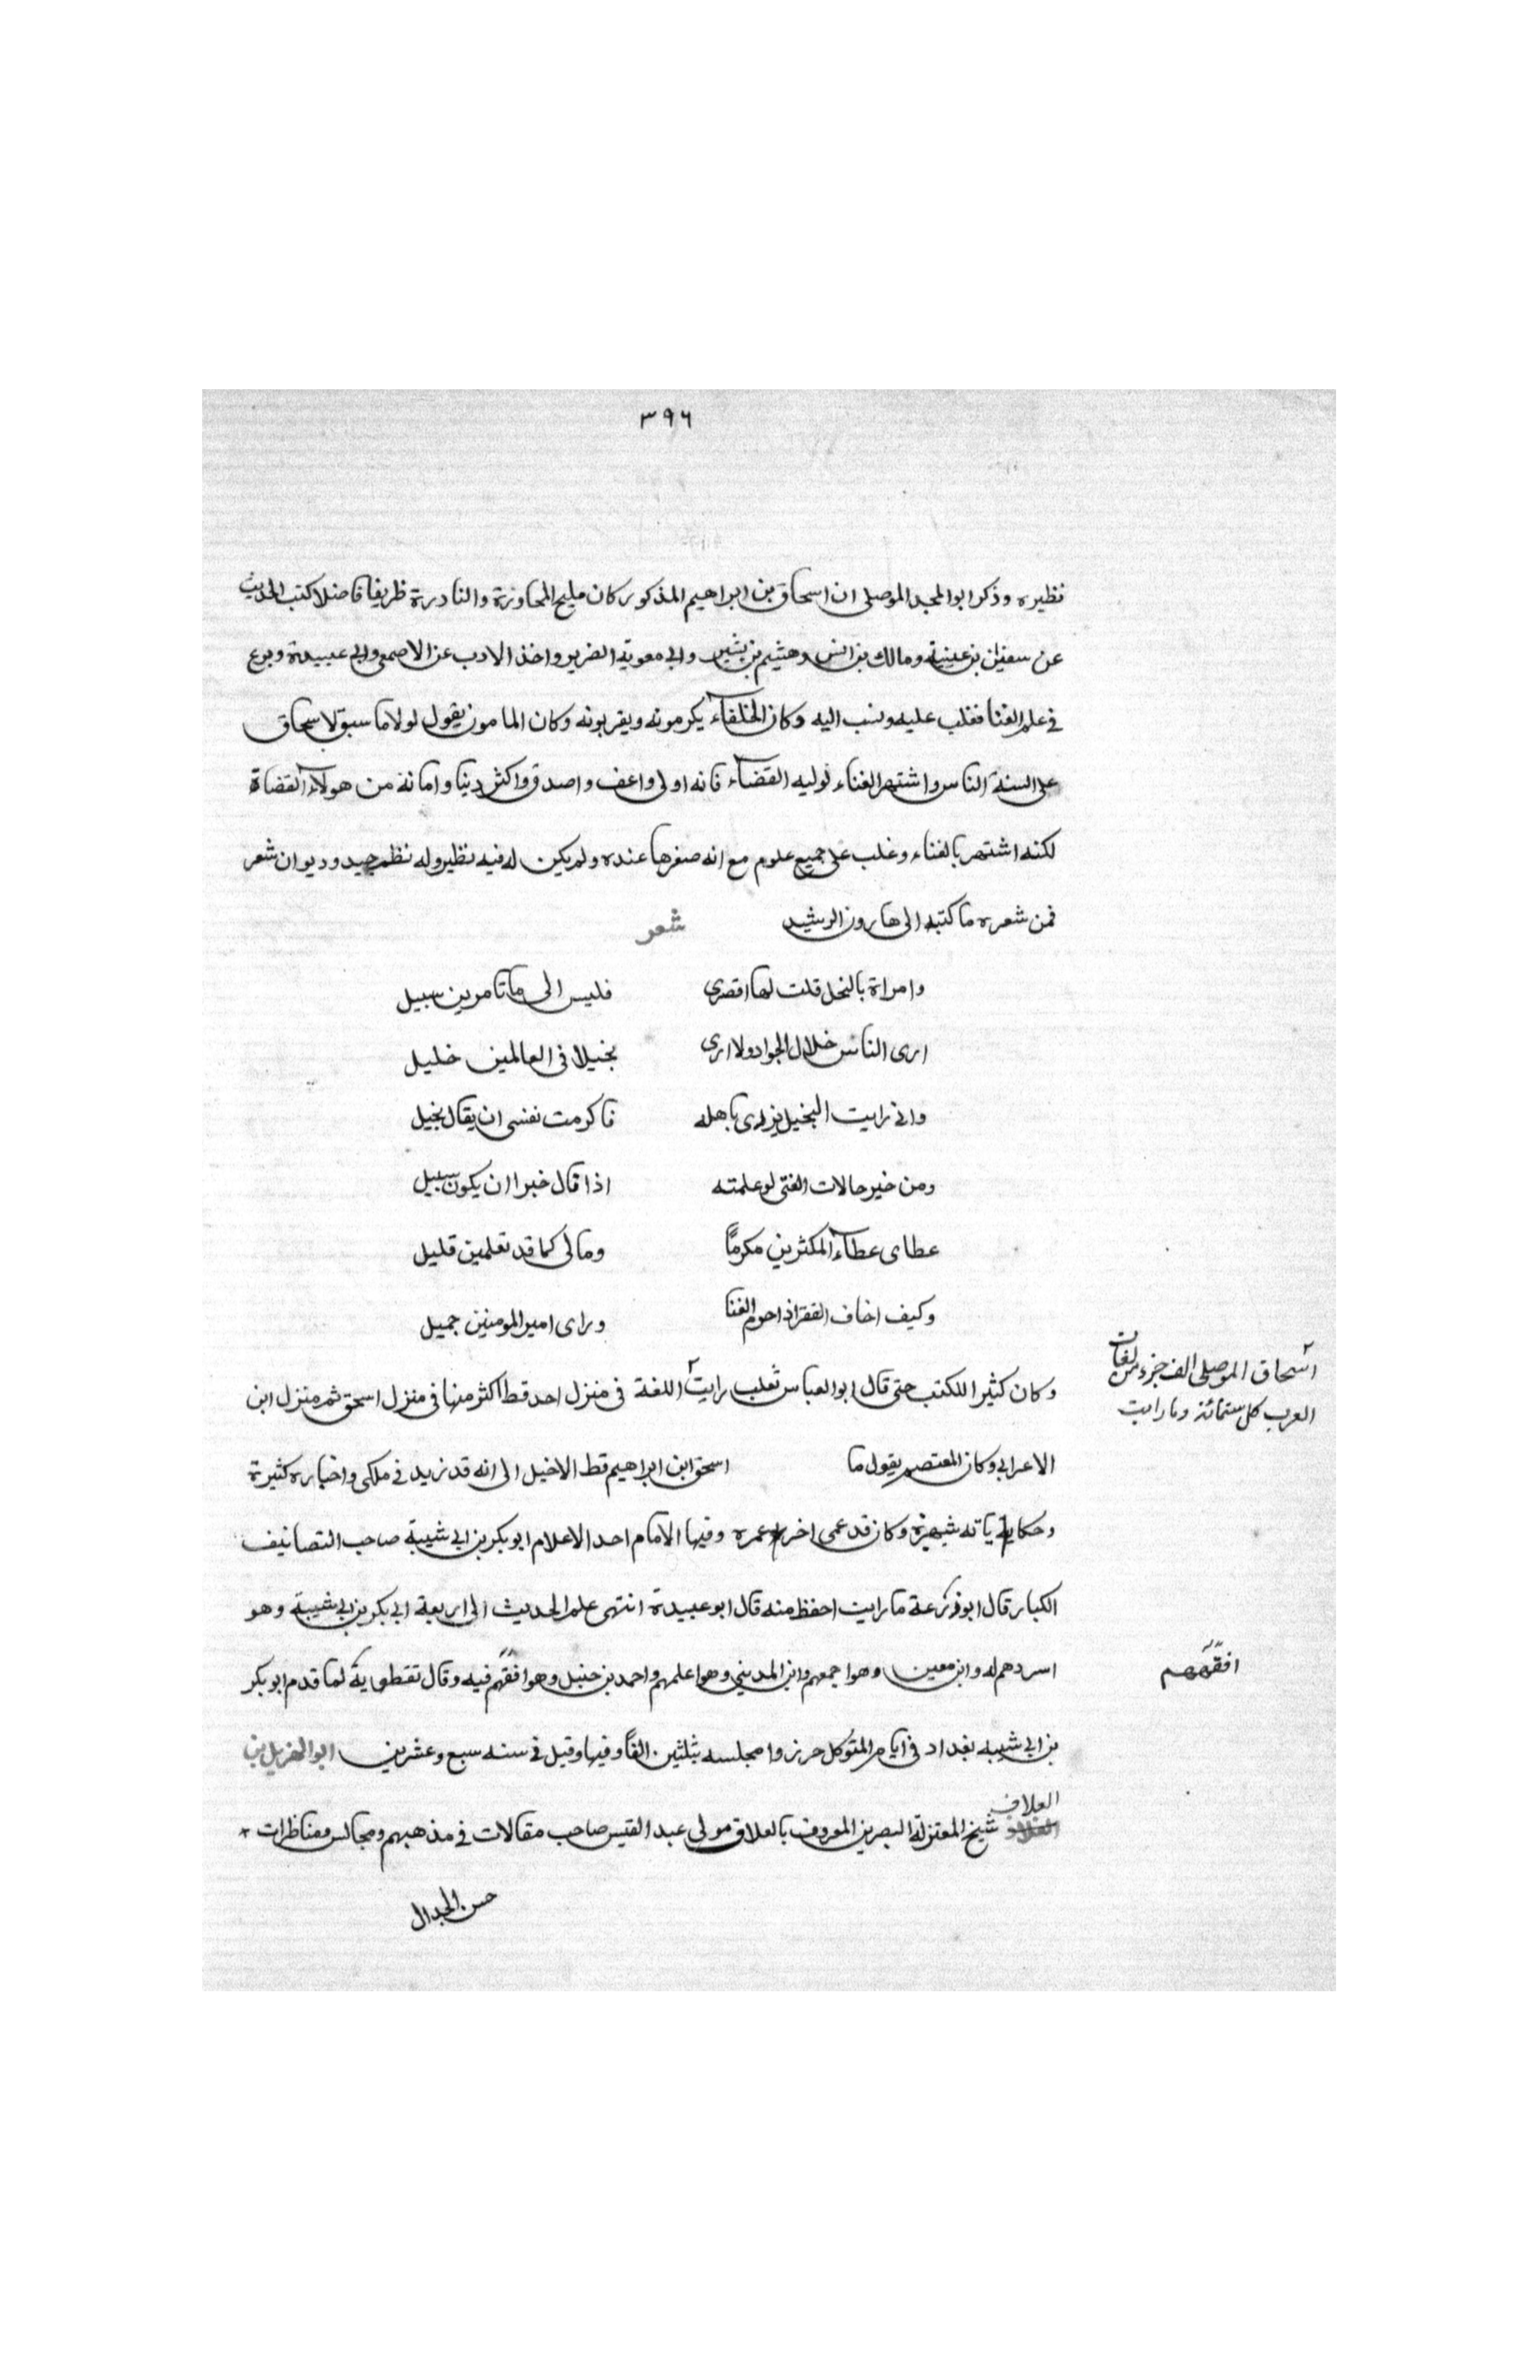 ٣٩٦
نظيره وذكر ابو المجد الموصلى ان اسحاق بن ابراهيم المذكور كان مليح المحاورة والنادرة ظريفا فاضلا كتب الحديث
عن سفيان بن عيينة ومالك بن انس وهشيم بن بشير وابى معوية الضرير واخذ الادب عن الاصمعى وابى عبيدة وبرع
فى علم الغنا فغلب عليه ونسب اليه وكان الخلفاء يكرمونه ويقربونه وكان المامون يقول لولا ما سبق لاسحاق
على السنة الناس واشتهر الغناء لوليه القضاء فانه اولى واعف واصدق واكثر دينا وامانة من هولاء القضاة
لكنه اشتهر بالغناء وغلب على جميع علوم مع انه صغرها عنده ولم يكن له فيه نظير وله نظم جيد وديوان شعر
فمن شعره ما كتبه الى هارون الرشيد شعر
وامراة بالبخل قلت لها اقصرى فليس الى ما تامرين سبيل
ارى الناس خلال الجواد ولا ارى بخيلا فى العالمين خليل
وانى رايت البخيل يزرى باهله فاكرمت نفسى ان يقال بخيل
ومن خير حالات الفتى لو علمته اذا قال خيرا ان يكون سبيل
عطاى عطاء المكثرين مكرمًا ومالى كما قد تعلمين قليل
وكيف اخاف الفقر اذ احرم الغنا وراى امير المومنين جميل
وكان كثير اللكتب حتى قال ابو العباس ثعلب رايت اللغة فى منزل احد قط اكثر منها فى منزل اسحق ثم منزل ابن
اسحاق الموصلى الف جزء من لغات
العرب كل ستمائة وما رايت
الاعرابى وكان المعتصم يقول ما اسحق ابن ابراهيم قط الا خيل الى انه قد زيد فى ملكى واخباره كثيرة
وحكاياته شهيرة وكان قد عمى اخر عمره وفيها الامام احد الاعلام ابو بكر بن ابى شيبة صاحب التصانيف
الكبار قال ابو زرعة ما رايت احفظ منه قال ابو عبيدة انتهى علم الحديث الى اربعة ابى بكر بن ابى شيبة وهو
اسردهم له وابن معين وهو اجمعهم وابن المدينى وهو اعلمهم واحمد بن حنبل وهو افقهم فيه وقال نفطوية لما قدم ابو بكر
افقههم
بن ابى شيبه بغداد فى ايام المتوكل حرزوا مجلسه بثلثين الفًا وفيها وقيل فى سنه سبع وعشرين ابو الهزيل بن
العلاف
شيخ المعتزلة البصرين المعروف بالعلاق مولى عبد القيس صاحب مقالات فى مذهبهم ومجالس ومناظرات
حسن الجدال